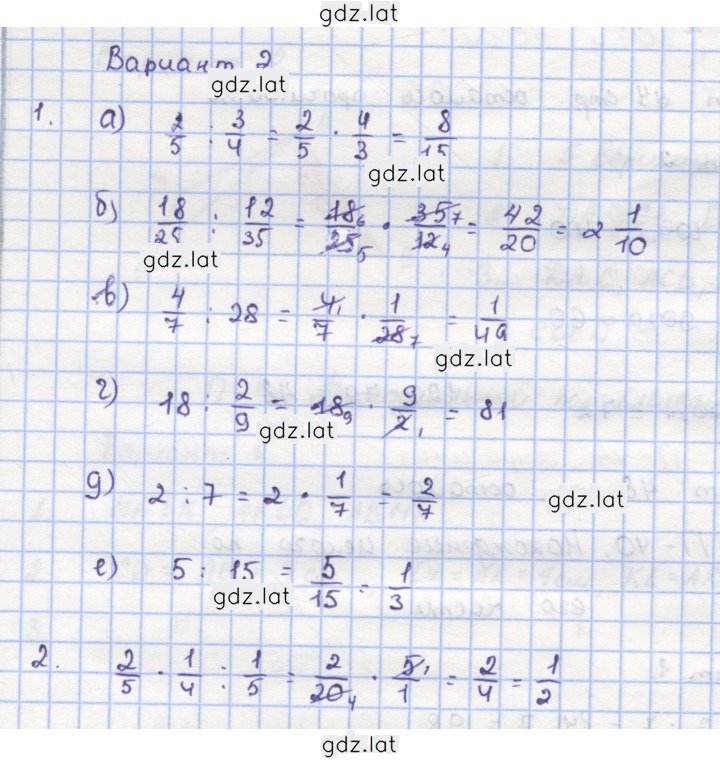 gdz.lat
Вариант 2
gdz.lat
1. а) 2/5 : 3/4 = 2/5 · 4/3 = 8/15
gdz.lat
б) 18/25 : 12/35 = 18 6/25 5 · 35 7/12 4 = 42/20 = 2 1/10
gdz.lat
в) 4/7 : 28 = 4 1/7 · 1/28 7 = 1/49
gdz.lat
г) 18 : 2/9 = 18 9 · 9/2 1 = 81
gdz.lat
д) 2 : 7 = 2 · 1/7 = 2/7
gdz.lat
е) 5 : 15 = 5/15 = 1/3
gdz.lat
2. 2/5 · 1/4 : 1/5 = 2/20 4 · 5 1/1 = 2/4 = 1/2
gdz.lat